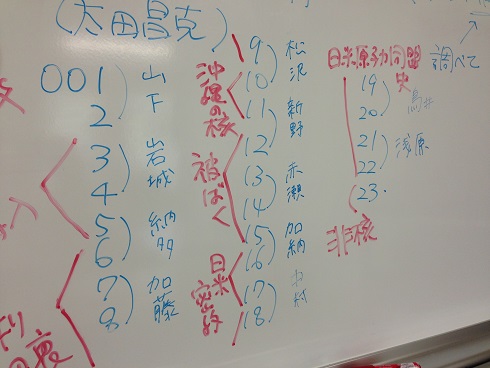 (太田昌克)
001
2
山下
3
4
岩城
5
6
納多
7
8
加藤
沖縄の核
被ばく
日米密約
9
10
松沢
11
12
新野
13
14
赤瀬
15
16
加納
17
18
日米原子力同盟史
調べて
19
20
21
22
浅原
23.
非核